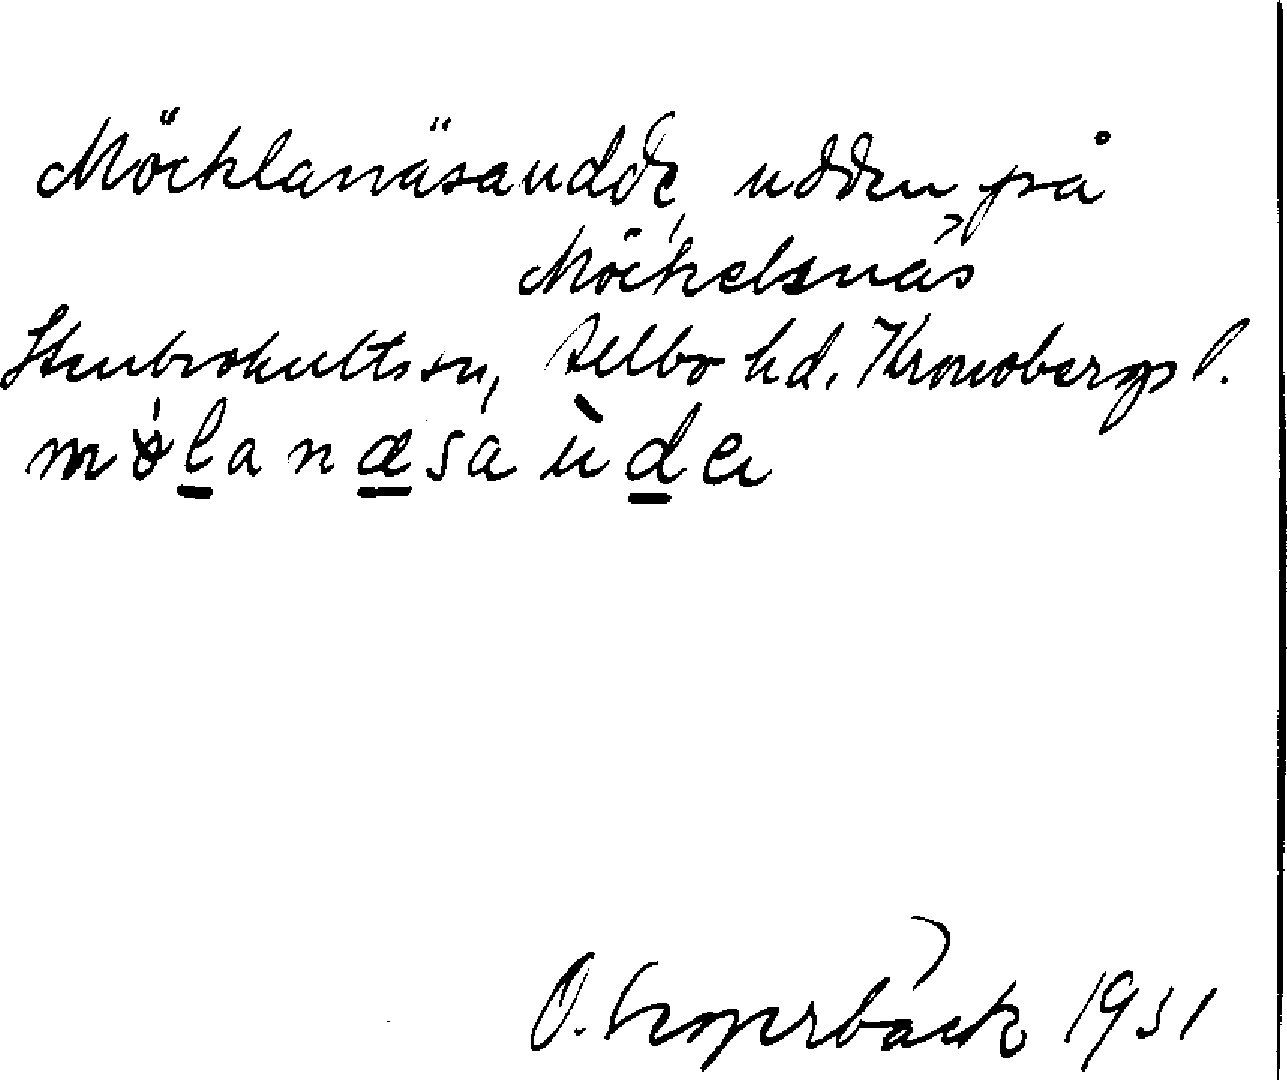 Möcklanäsaudde, udden på
Möckelsnäs
Stenbrohults sn, Allbo hd. Kronobergs l.
O. 1951